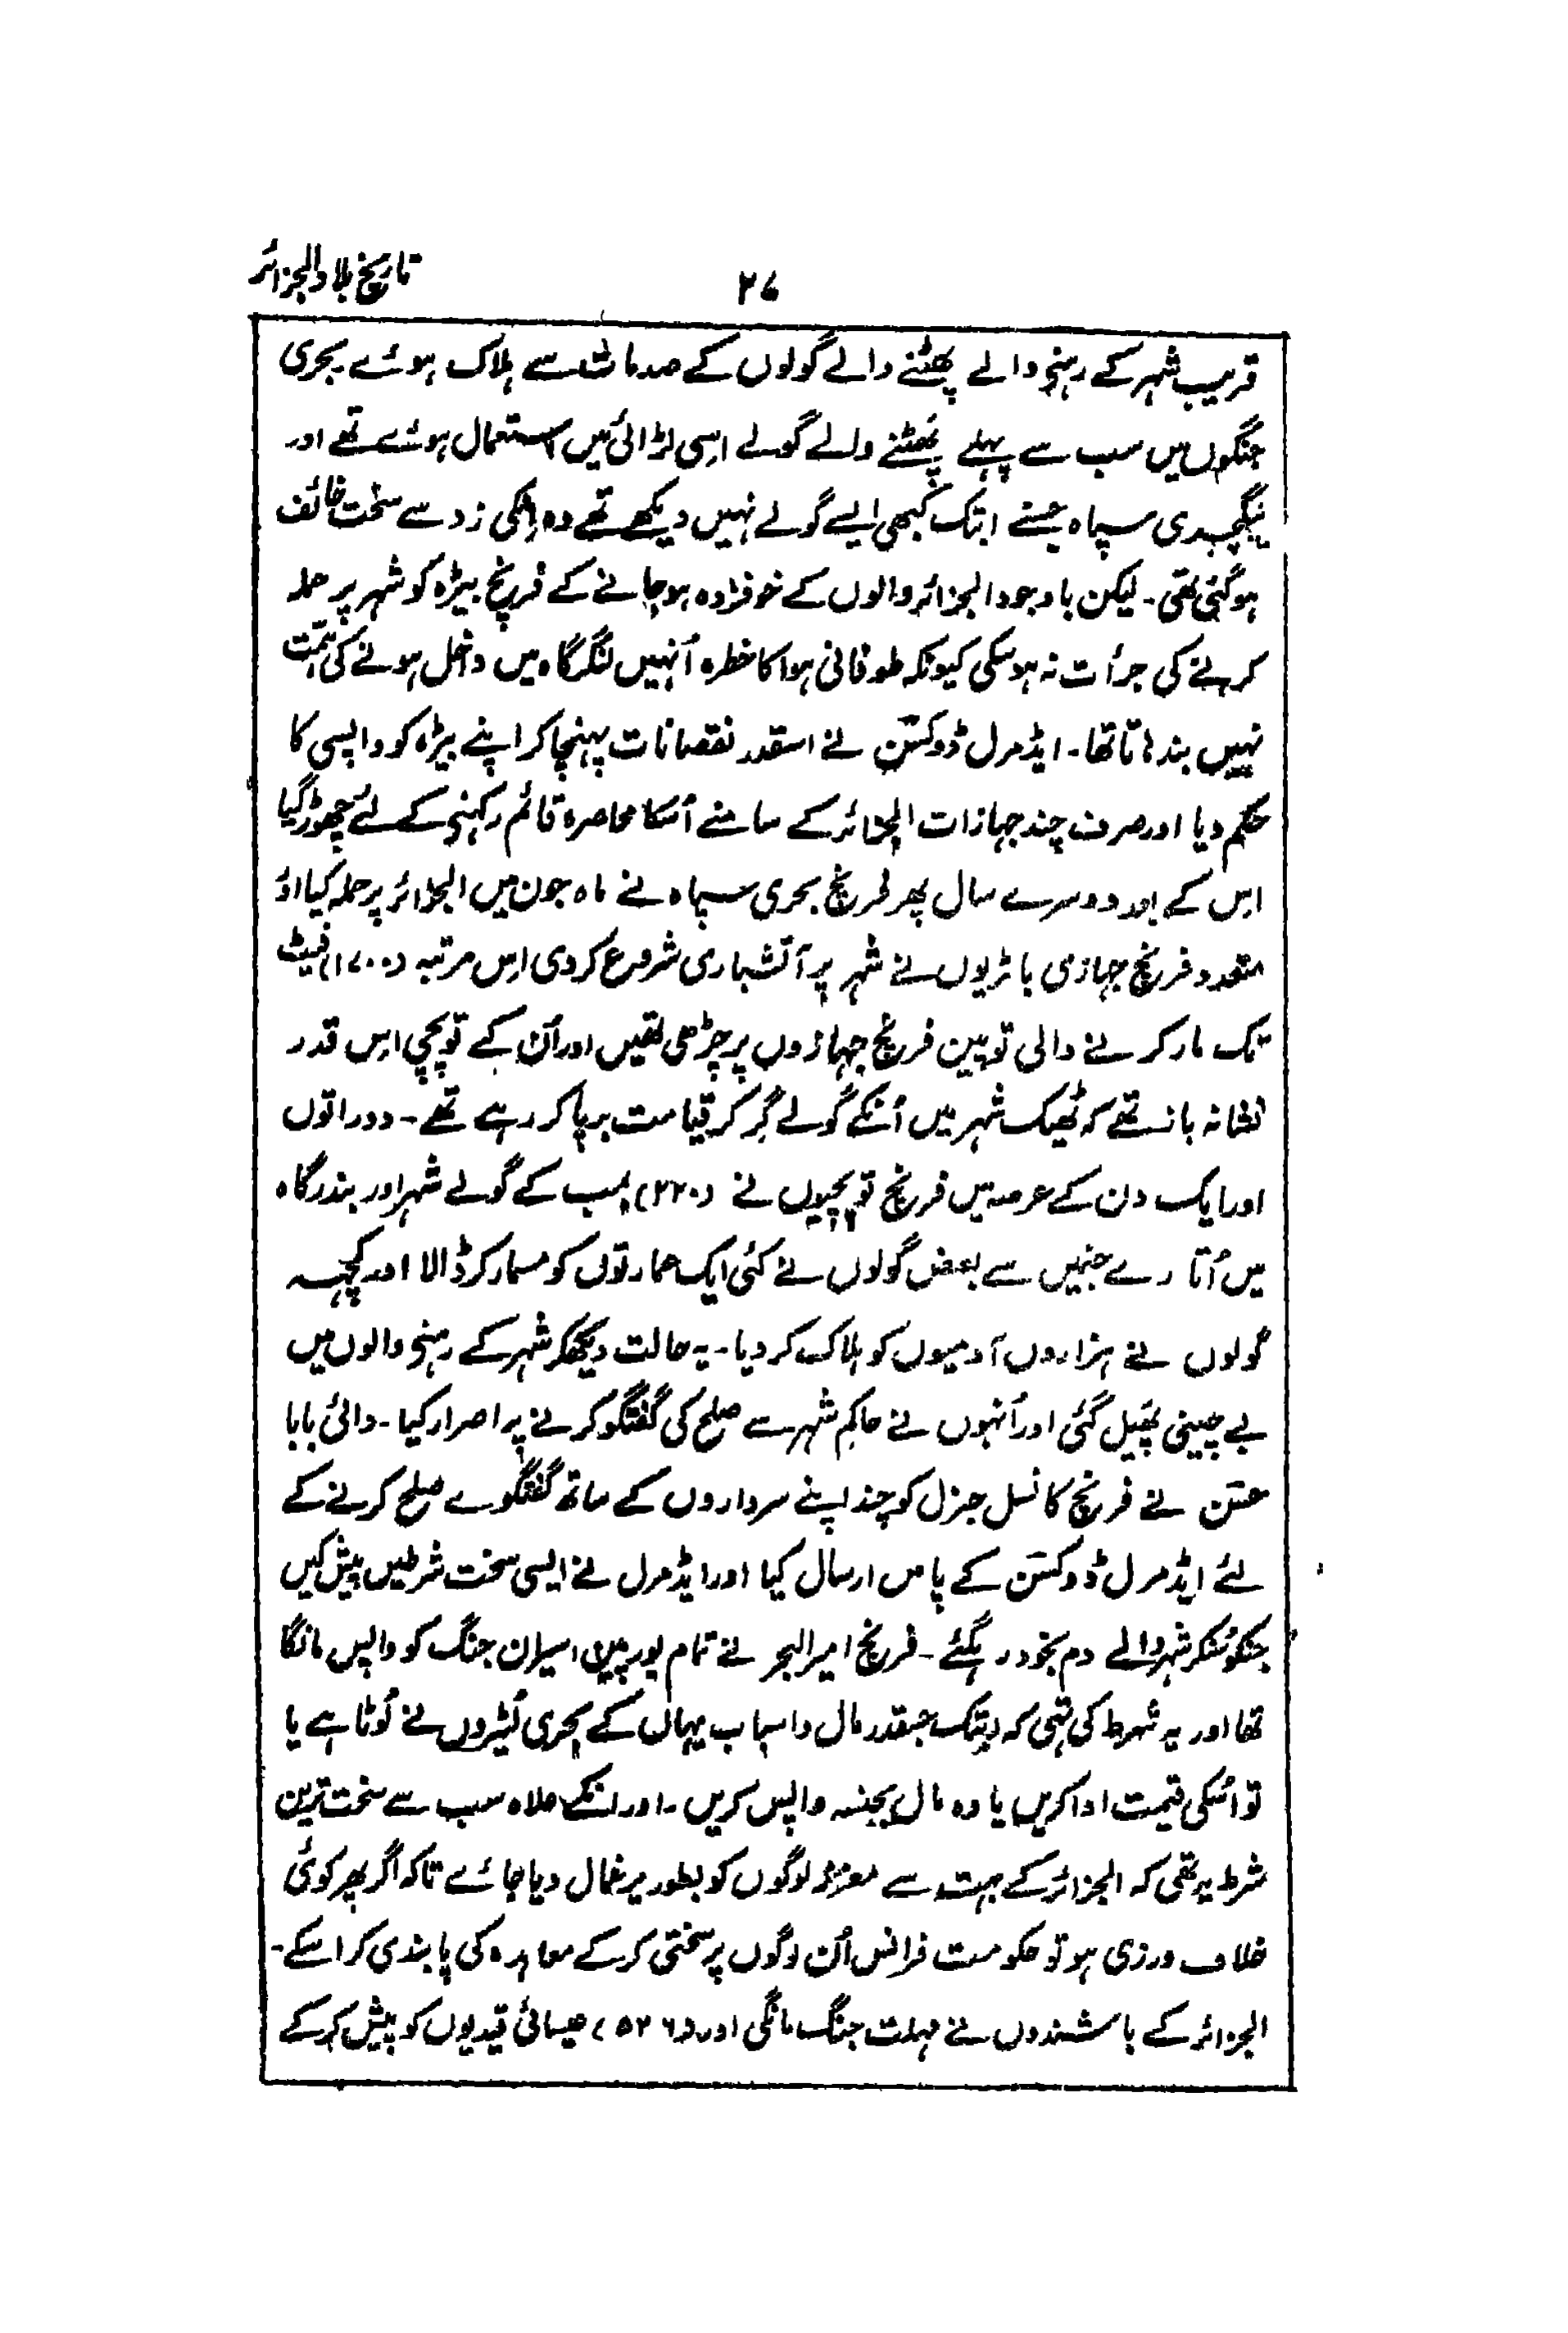 تاریخ بلاد الجزائر
۲۷
قریب شہر کے رہنے والے پھٹنے والے گولوں کے صدمات سے ہلاک ہوئے بحری
جنگوں میں سب سے پہلے پُھٹنے والے گولے اِسی لڑائی میں استعمال ہوئے تھے اور
ینگچہری سپاہ جسنے ابتک کبھی ایسے گولے نہیں دیکھے تھے وہ اِنکی زد سے سخت خائف
ہوگئی تھی۔ لیکن باوجود الجزائر والوں کے خوفزدہ ہوجانے کے فرنچ بیڑہ کو شہر پر حملہ
کرنے کی جرأت نہ ہوسکی کیونکہ طوفانی ہوا کا خطرہ اُنہیں لنگرگاہ میں داخل ہونے کی ہمّت
نہیں بندہاتا تھا۔ ایڈمرل ڈوکسّن نے اسقدر نقصانات پہنچاکر اپنے بیڑہ کو واپسی کا
حکم دیا اور صرف چند جہازات الجزائر کے سامنے اُسکا محاصرہ قائم رکہنے کے لئے چھوڑ گیا
اِس کے بعد دوسرے سال پھر فرنچ بحری سپاہ نے ماہ جون میں الجزائر پر حملہ کیا اور
متعدد فرنچ جہازی باٹریوں نے شہر پر آتشباری شروع کردی اِس مرتبہ (۱۷۰۰) فیٹ
تک مار کرنے والی توپین فرنچ جہازوں پر چڑھی تھیں اور اُن کے توپچی اِس قدر
نشانہ باز تھے کہ ٹھیک شہر میں اُنکے گولے گِر کر قیامت برپا کر رہے تھے۔ دو راتوں
اور ایک دن کے عرصہ میں فرنچ توپچیوں نے (۲۲۰) بمب کے گولے شہر اور بندرگاہ
میں اُتارے جنہیں سے بعض گولوں نے کئی ایک عمارتوں کو مسمار کرڈالا اور کچہہ
گولوں نے ہزاروں آدمیوں کو ہلاک کردیا۔ یہ حالت دیکھکر شہر کے رہنے والوں میں
بے چینی پھیل گئی اور اُنہوں نے حاکم شہر سے صلح کی گفتگو کرنے پر اصرار کیا۔ دائی بابا
حسّن نے فرنچ کانسل جنرل کو چند اپنے سرداروں کے ساتھ گفتگوے صلح کرنے کے
لئے ایڈمرل ڈوکسّن کے پاس ارسال کیا اور ایڈمرل نے ایسی سخت شرطیں پیش کیں
جنکو سُنکر شہر والے دم بخود رہگئے۔ فرنچ امیر البحر نے تمام یورپین اسیران جنگ کو واپس مانگا
تھا اور یہ شرط کی تہی کہ ابتک جسقدر مال و اسباب یہاں کے بحری لُٹیروں نے لُوٹا ہے یا
تو اُسکی قیمت ادا کریں یا وہ مال بجنسہ واپس کریں۔ اور اِنکے علاوہ سب سے سخت ترین
شرط یہ تھی کہ الجزائر کے بہت سے معزز لوگوں کو بطور یرغمال دیا جائے تاکہ اگر پھر کوئی
خلاف ورزی ہو تو حکومت فرانس اُن لوگوں پر سختی کرکے معاہدہ کی پابندی کراسکے۔
الجزائر کے باشندوں نے مہلت جنگ مانگی اور (۵۲۶) عیسائی قیدیوں کو پیش کرکے